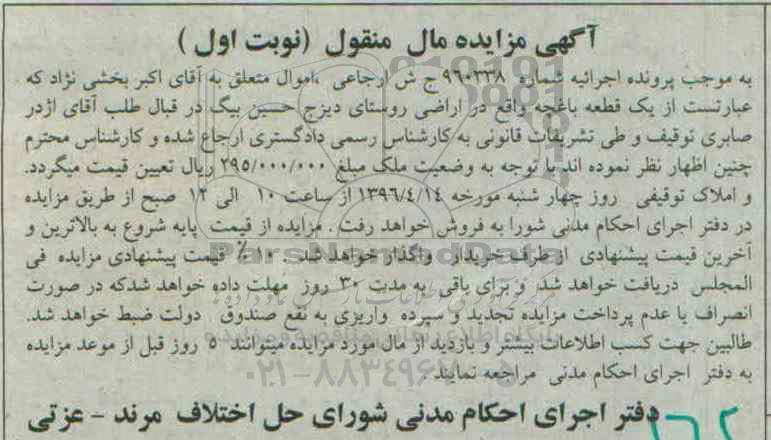 آگهی مزایده مال منقول (نوبت اول )
به موجب پرونده اجرائیه شماره ۹۶۰۳۳۸ ج ش ارجاعی ،اموال متعلق به آقای اکبر بخشی نژاد که
عبارتست از یک قطعه باغچه واقع در اراضی روستای دیزج حسین بیگ در قبال طلب آقای اژدر
صابری توقیف و طی تشریفات قانونی به کارشناس رسمی دادگستری ارجاع شده و کارشناس محترم
چنین اظهار نظر نموده اند با توجه به وضعیت ملک مبلغ ۲۹۵/۰۰۰/۰۰۰ ریال تعیین قیمت میگردد.
و املاک توقیفی روز چهار شنبه مورخه ۱۳۹٦/٤/۱٤ از ساعت ۱۰ الی ۱۲ صبح از طریق مزایده
در دفتر اجرای احکام مدنی شورا به فروش خواهد رفت . مزایده از قیمت پایه شروع به بالاترین و
آخرین قیمت پیشنهادی از طرف خریدار واگذار خواهد شد . ۱۰٪ قیمت پیشنهادی مزایده فی
المجلس دریافت خواهد شد و برای باقی به مدت ۳۰ روز مهلت داده خواهد شدکه در صورت
انصراف یا عدم پرداخت مزایده تجدید و سپرده واریزی به نفع صندوق دولت ضبط خواهد شد.
طالبین جهت کسب اطلاعات بیشتر و بازدید از مال مورد مزایده میتوانند ۵ روز قبل از موعد مزایده
به دفتر اجرای احکام مدنی مراجعه نمایند .
دفتر اجرای احکام مدنی شورای حل اختلاف مرند - عزتی
ParsNamadData
۰۲۱-۸۸۳٤۹٦
۱۶۲